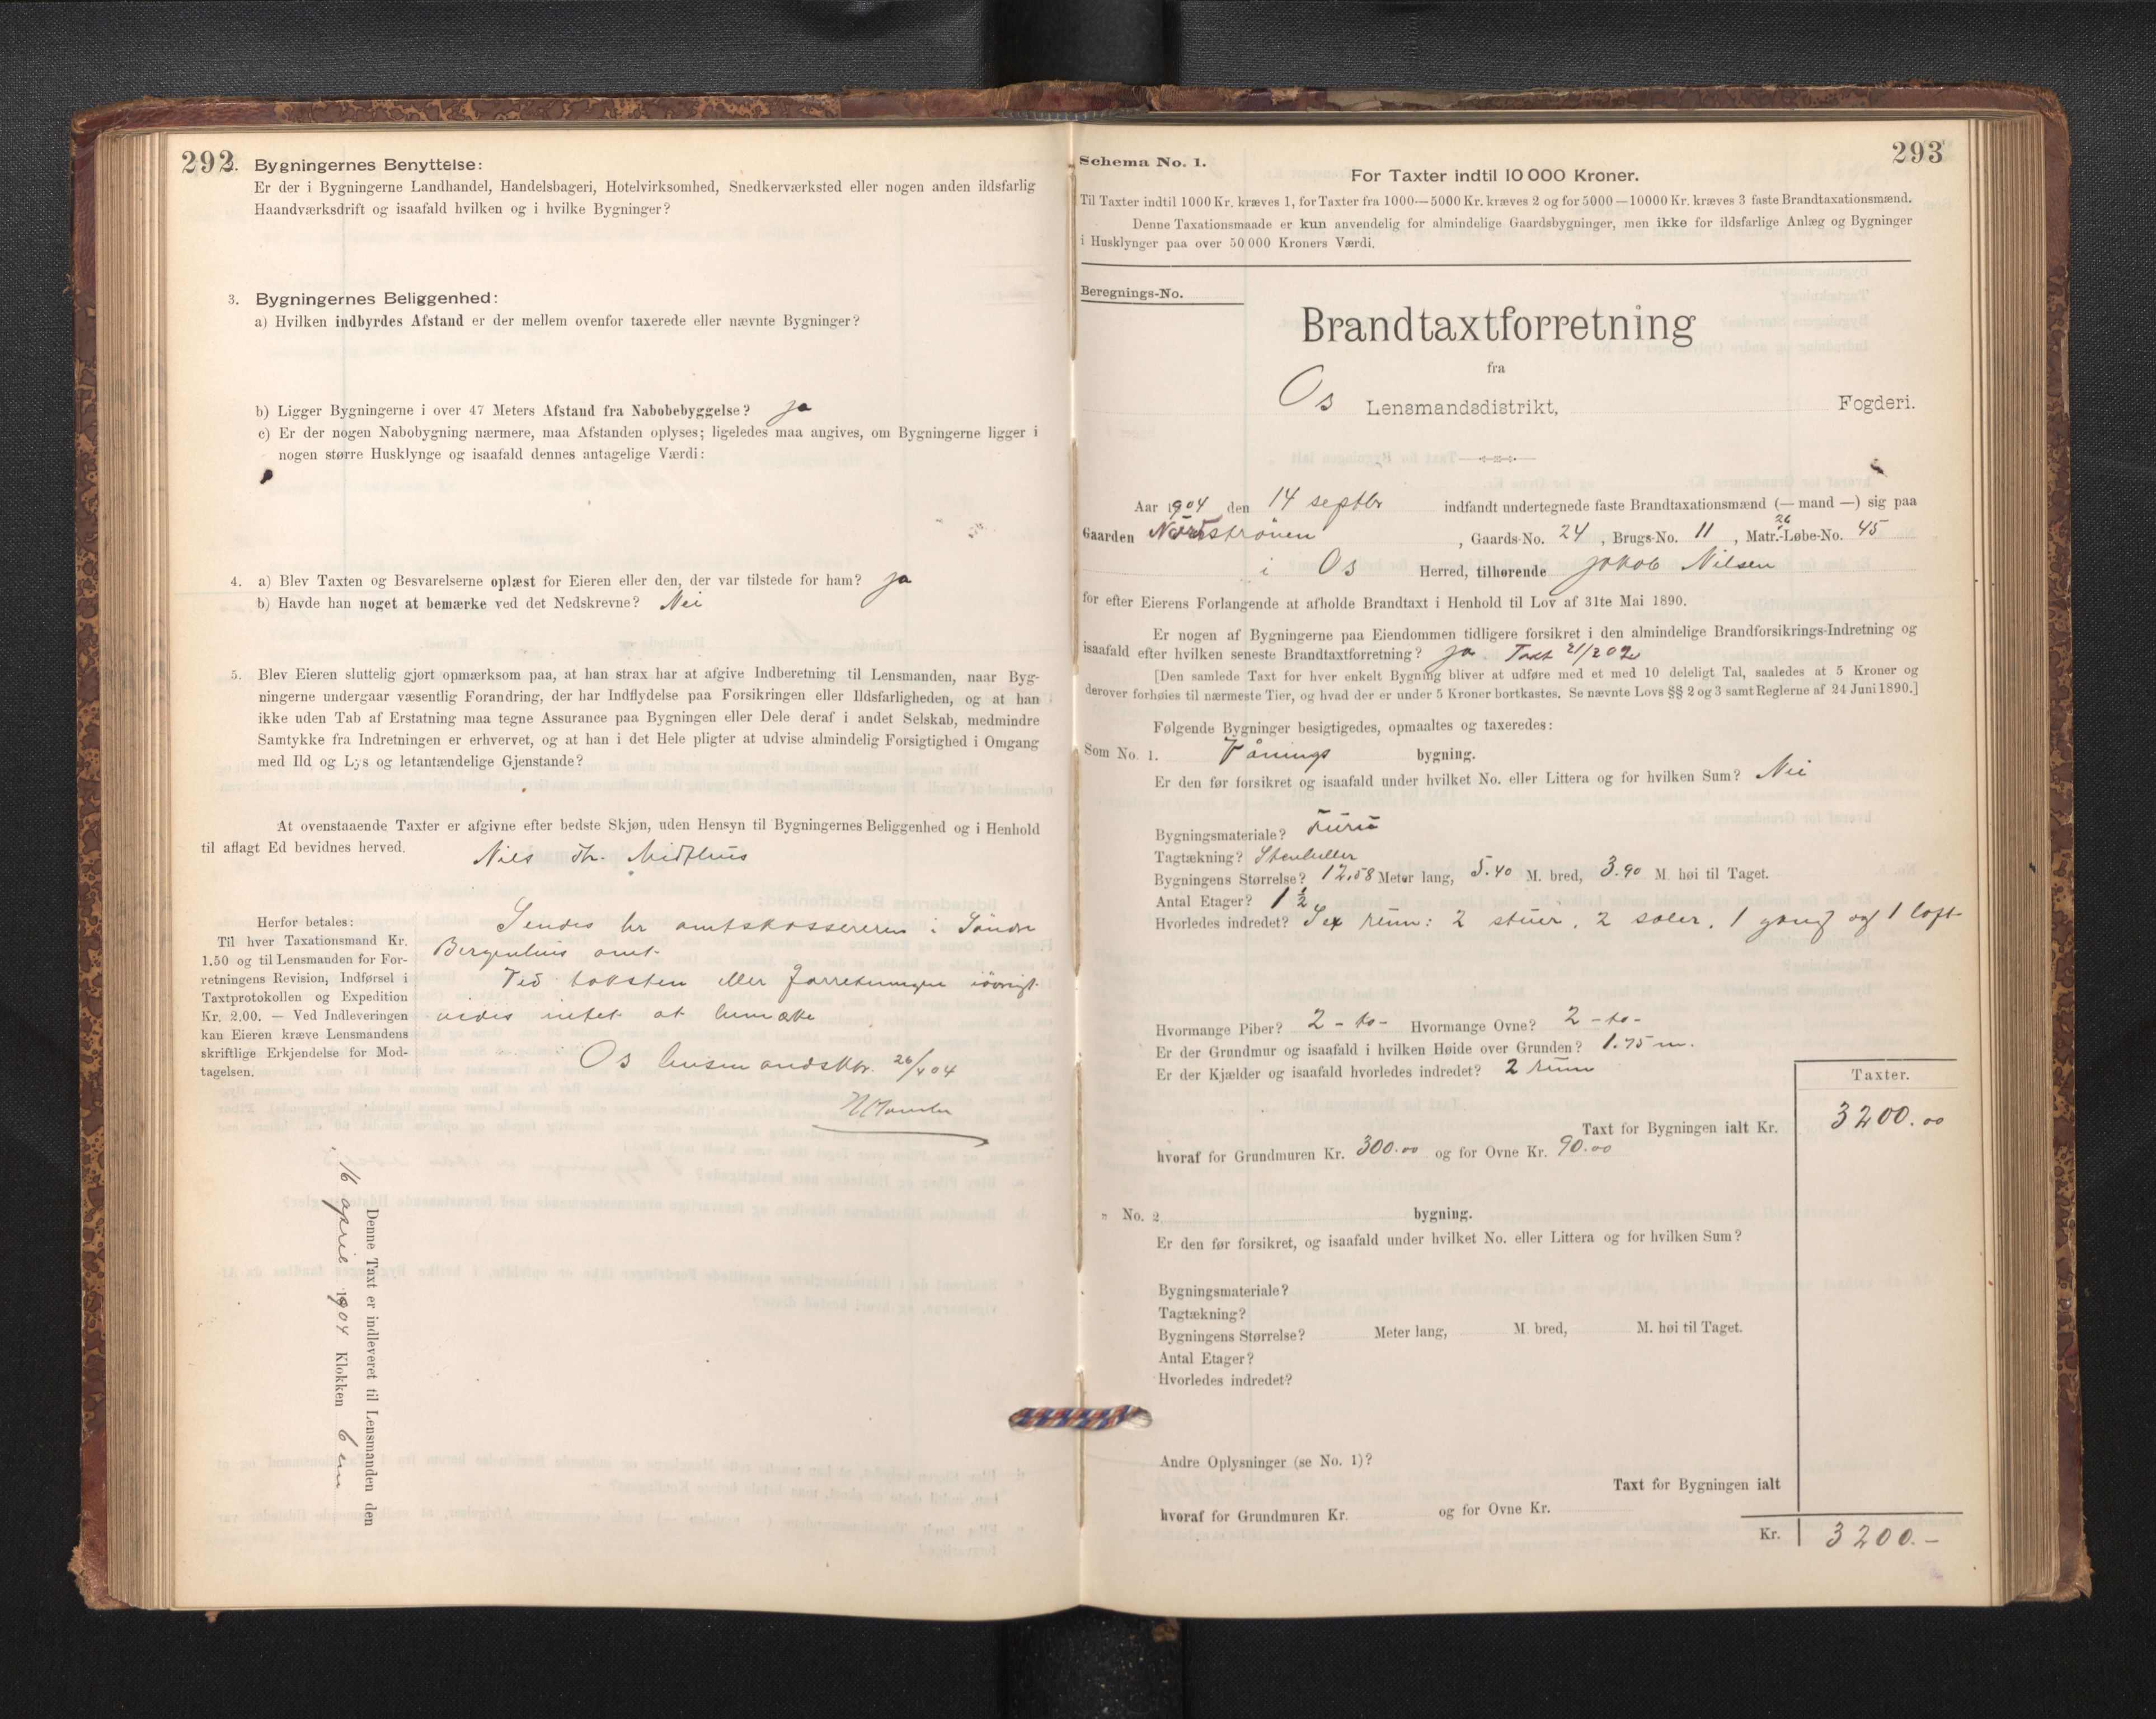 292
2. Bygningernes Benyttelse:
Er der i Bygningerne Landhandel, Handelsbageri, Hotelvirksomhed, Snedkerværksted eller nogen anden ildsfarlig
Haandværksdrift og isaafald hvilken og i hvilke Bygninger?
3. Bygningernes Beliggenhed:
a) Hvilken indbyrdes Afstand er der mellem ovenfor taxerede eller nævnte Bygninger?
b) Ligger Bygningerne i over 47 Meters Afstand fra Nabobebyggelse? ja
c) Er der nogen Nabobygning nærmere, maa Afstanden oplyses; ligeledes maa angives, om Bygningerne ligger i
nogen større Husklynge og isaafald dennes antagelige Værdi:
4. a) Blev Taxten og Besvarelserne oplæst for Eieren eller den, der var tilstede for ham? ja
b) Havde han noget at bemærke ved det Nedskrevne? Nei
5. Blev Eieren sluttelig gjort opmærksom paa, at han strax har at afgive Indberetning til Lensmanden, naar Byg-
ningerne undergaar væsentlig Forandring, der har Indflydelse paa Forsikringen eller Ildsfarligheden, og at han
ikke uden Tab af Erstatning maa tegne Assurance paa Bygningen eller Dele deraf i andet Selskab, medmindre
Samtykke fra Indretningen er erhvervet, og at han i det Hele pligter at udvise almindelig Forsigtighed i Omgang
med Ild og Lys og letantændelige Gjenstande?
At ovenstaaende Taxter er afgivne efter bedste Skjøn, uden Hensyn til Bygningernes Beliggenhed og i Henhold
til aflagt Ed bevidnes herved.
Nils Th. Midthus
Herfor betales:
Til hver Taxationsmand Kr.
1.50 og til Lensmanden for For-
retningens Revision, Indførsel i
Taxtprotokollen og Expedition
Kr. 2.00. — Ved Indleveringen
kan Eieren kræve Lensmandens
skriftlige Erkjendelse for Mod-
tagelsen.
Sendes hr amtskassereren i Søndre
Bergenhus amt.
Ved taksten eller forretningen iøvrigt
vides intet at bemærke
Os lensmandsktr. 26/4 04
Denne Taxt er indleveret til Lensmanden den
16 april 1904 Klokken 6 em
293
Schema No. 1.
For Taxter indtil 10 000 Kroner.
Til Taxter indtil 1000 Kr. kræves 1, for Taxter fra 1000—5000 Kr. kræves 2 og for 5000—10000 Kr. kræves 3 faste Brandtaxationsmænd.
Denne Taxationsmaade er kun anvendelig for almindelige Gaardsbygninger, men ikke for ildsfarlige Anlæg og Bygninger
i Husklynger paa over 50 000 Kroners Værdi.
Beregnings-No.
Brandtaxtforretning
fra
Os Lensmandsdistrikt, Fogderi.
Aar 1904 den 14 septbr indfandt undertegnede faste Brandtaxationsmænd (— mand —) sig paa
Gaarden Nordstrønen, Gaards-No. 24, Brugs-No. 11, Matr.-Løbe-No. 45 26
i Os Herred, tilhørende Jakob Nilsen
for efter Eierens Forlangende at afholde Brandtaxt i Henhold til Lov af 31te Mai 1890.
Er nogen af Bygningerne paa Eiendommen tidligere forsikret i den almindelige Brandforsikrings-Indretning og
isaafald efter hvilken seneste Brandtaxtforretning? ja. Taxt 21/2 02
[Den samlede Taxt for hver enkelt Bygning bliver at udføre med et med 10 deleligt Tal, saaledes at 5 Kroner og
derover forhøies til nærmeste Tier, og hvad der er under 5 Kroner bortkastes. Se nævnte Lovs §§ 2 og 3 samt Reglerne af 24 Juni 1890.]
Følgende Bygninger besigtigedes, opmaaltes og taxeredes:
Som No. 1. Vånings bygning.
Er den før forsikret og isaafald under hvilket No. eller Littera og for hvilken Sum? Nei
Bygningsmateriale? Furu
Tagtækning? Stenheller
Bygningens Størrelse? 12.58 Meter lang, 5.40 M. bred, 3.90 M. høi til Taget.
Antal Etager? 1 1/2
Hvorledes indredet? Sex rum: 2 stuer, 2 saler, 1 gang og 1 loft
Hvormange Piber? 2 - to - Hvormange Ovne? 2 - to -
Er der Grundmur og isaafald i hvilken Høide over Grunden? 1.75 m.
Er der Kjælder og isaafald hvorledes indredet? 2 rum
Taxter.
Taxt for Bygningen ialt Kr. 3200.00
hvoraf for Grundmuren Kr. 300.00 og for Ovne Kr. 90.00
" No. 2 bygning.
Er den før forsikret, og isaafald under hvilket No. eller Littera og for hvilken Sum?
Bygningsmateriale?
Tagtækning?
Bygningens Størrelse? Meter lang, M. bred, M. høi til Taget.
Antal Etager?
Hvorledes indredet?
Andre Oplysninger (se No. 1)?
Taxt for Bygningen ialt
hvoraf for Grundmuren Kr. og for Ovne Kr.
Kr. 3200.-